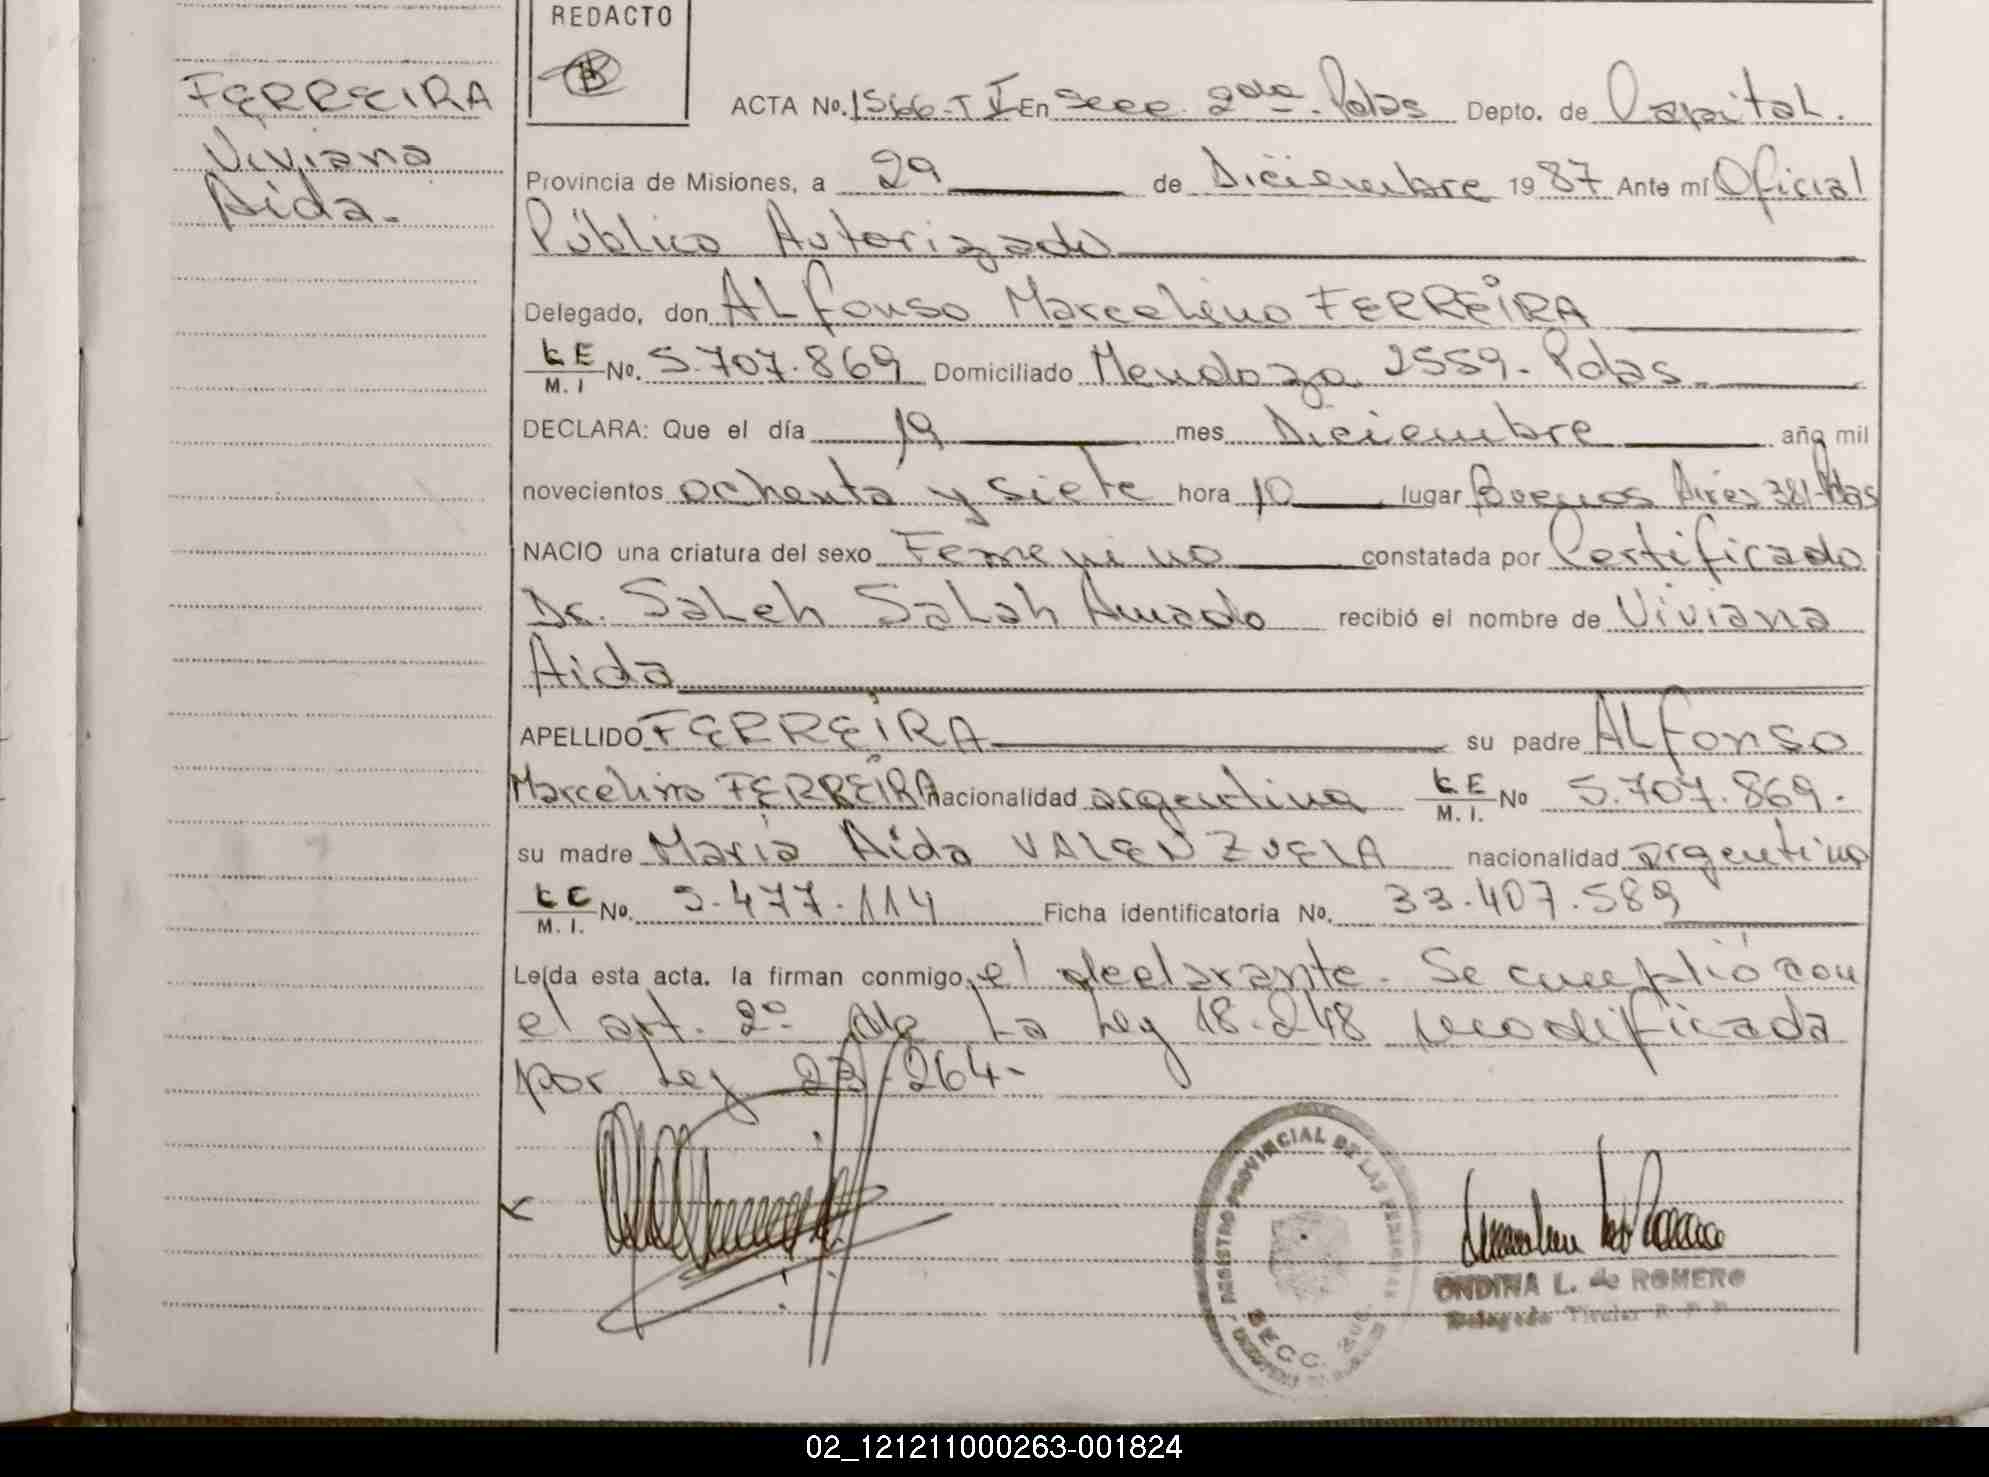 REDACTO
FERREIRA
Viviana
Aida.-
ACTA No. 1566-T V En Secc. 2da. Pdas Depto. de Capital.
Provincia de Misiones, a 29 de Diciembre 1987 Ante mí Oficial
Público Autorizado
Delegado, don ALfonso Marcelino FERREIRA
L E
M. I No. 5.707.869 Domiciliado Mendoza 2559.- Pdas.
DECLARA: Que el día 19 mes Diciembre año mil
novecientos ochenta y siete hora 10 lugar Buenos Aires 381-Pdas
NACIO una criatura del sexo Femenino constatada por Certificado
Dr. SaLeh SaLah Amado recibió el nombre de Viviana
Aida
APELLIDO FERREIRA su padre ALfonso
Marcelino FERREIRA nacionalidad argentina L E
M. I. No 5.707.869.
su madre María Aida VALENZUELA nacionalidad argentina
L C
M. I. No. 5.477.114 Ficha identificatoria No. 33.407.589
Leída esta acta. la firman conmigo, el declarante.- Se cumplió con
el art. 2º de La Ley 18.248 modificada
por Ley 23.264-
REGISTRO PROVINCIAL DE LAS PERSONAS
SECC.
ONDINA L. de ROMERO
Delegada Titular R. P. P.
02_121211000263-001824